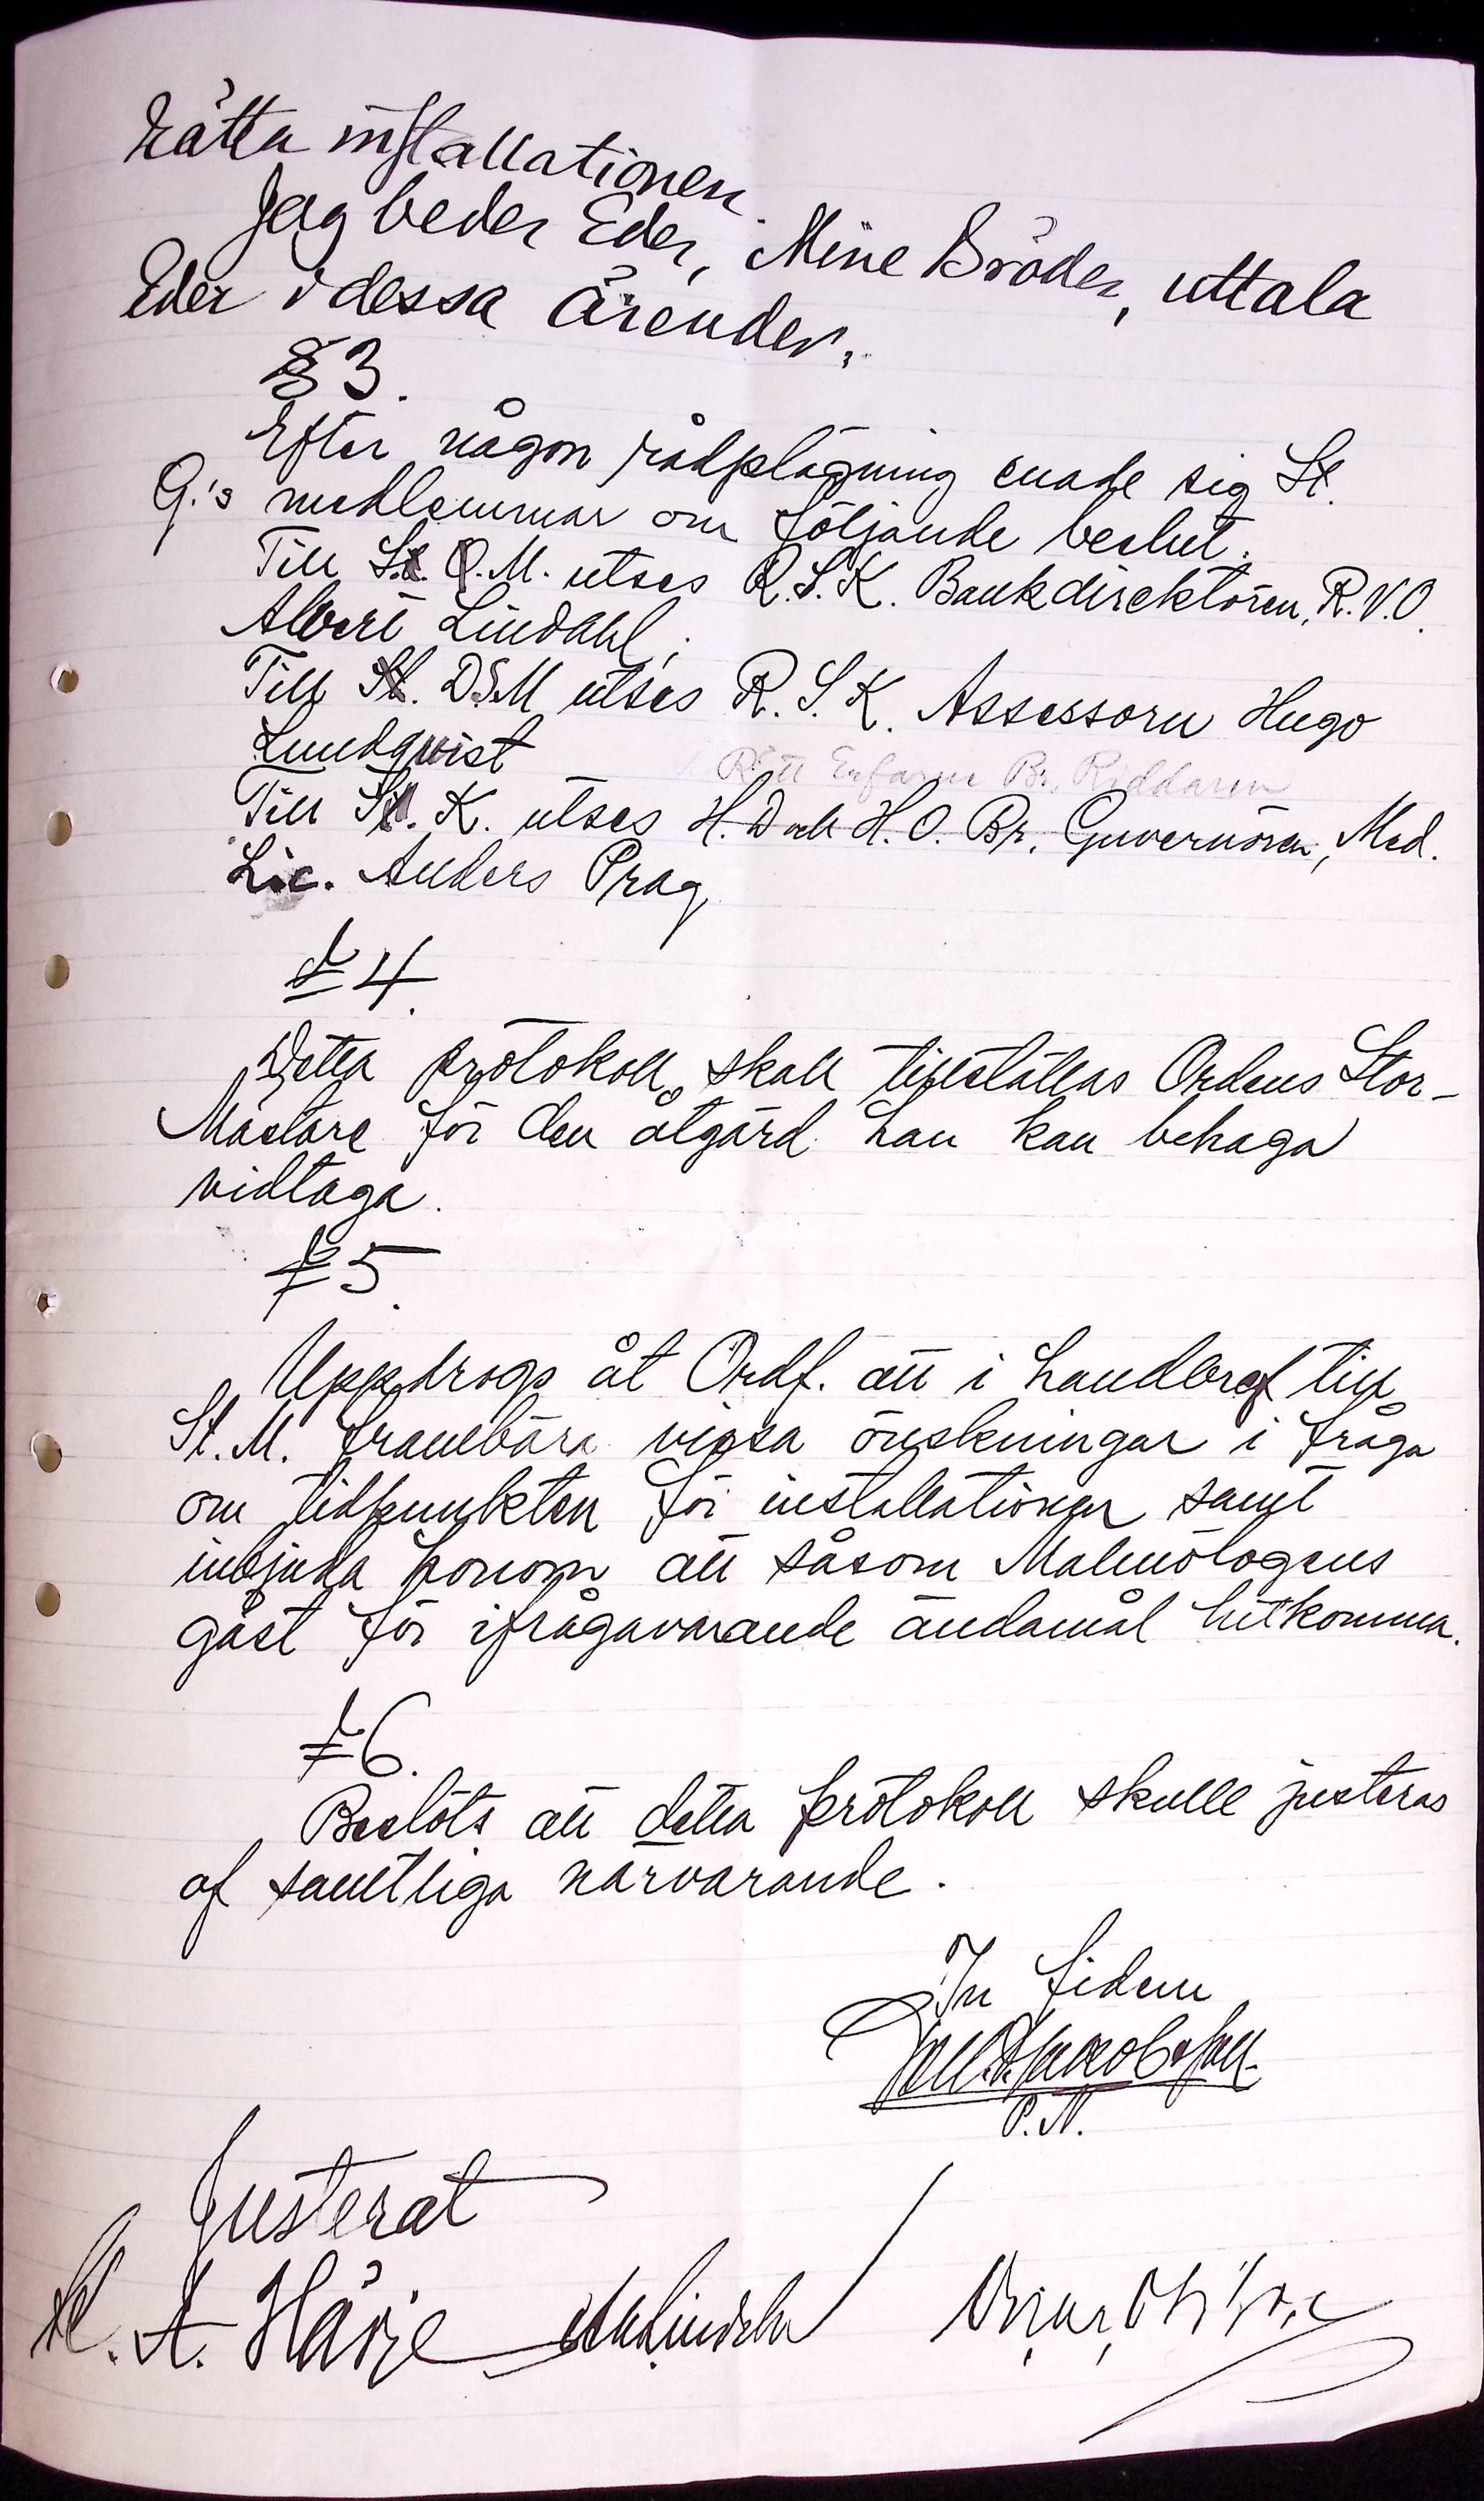 rätta installationen.
Jag beder Eder, Mine Bröder, uttala
Eder i dessa ärenden.
§ 3.
Efter någon rådplägning enade sig St.
G.'s medlemmar om följande beslut.
Till St. O.M. utses R.S.K. Bankdirektören, R.V.O.
Albert Lindahl;
Till St. D.S.M utses R.S.K. Assessorn Hugo
Lundqvist
Rätt Erfarne Br. Riddaren
Till St. K. utses H. D och H.O. Br. Guvernören, Med.
Lic. Anders Prag
§ 4.
Detta protokoll skall tillställas Ordens Stor-
Mästare för den åtgärd han kan behaga
vidtaga.
§ 5.
Uppdrogs åt Ordf. att i handbref till
St. M. frambära vissa önskningar i fråga
om tidpunkten för installationen samt
inbjuda honom att såsom Malmölogens
gäst för ifrågavarande ändamål hitkomma.
§ 6.
Beslöts att detta protokoll skulle justeras
af samtliga närvarande.
In fidem
P.N.
Justerat
A. Härje